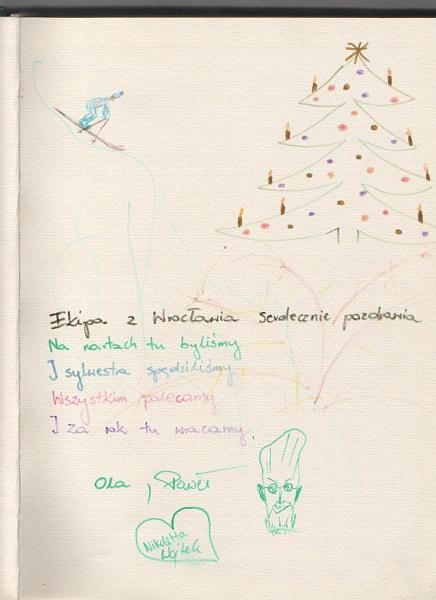 Ekipa z Wrocławia serdecznie pozdrawia
Na nartach tu byliśmy
I sylwestra spędziliśmy
Wszystkim polecamy
I za rok tu wracamy.
Ola, Paweł
Nikoletta
Wojtek